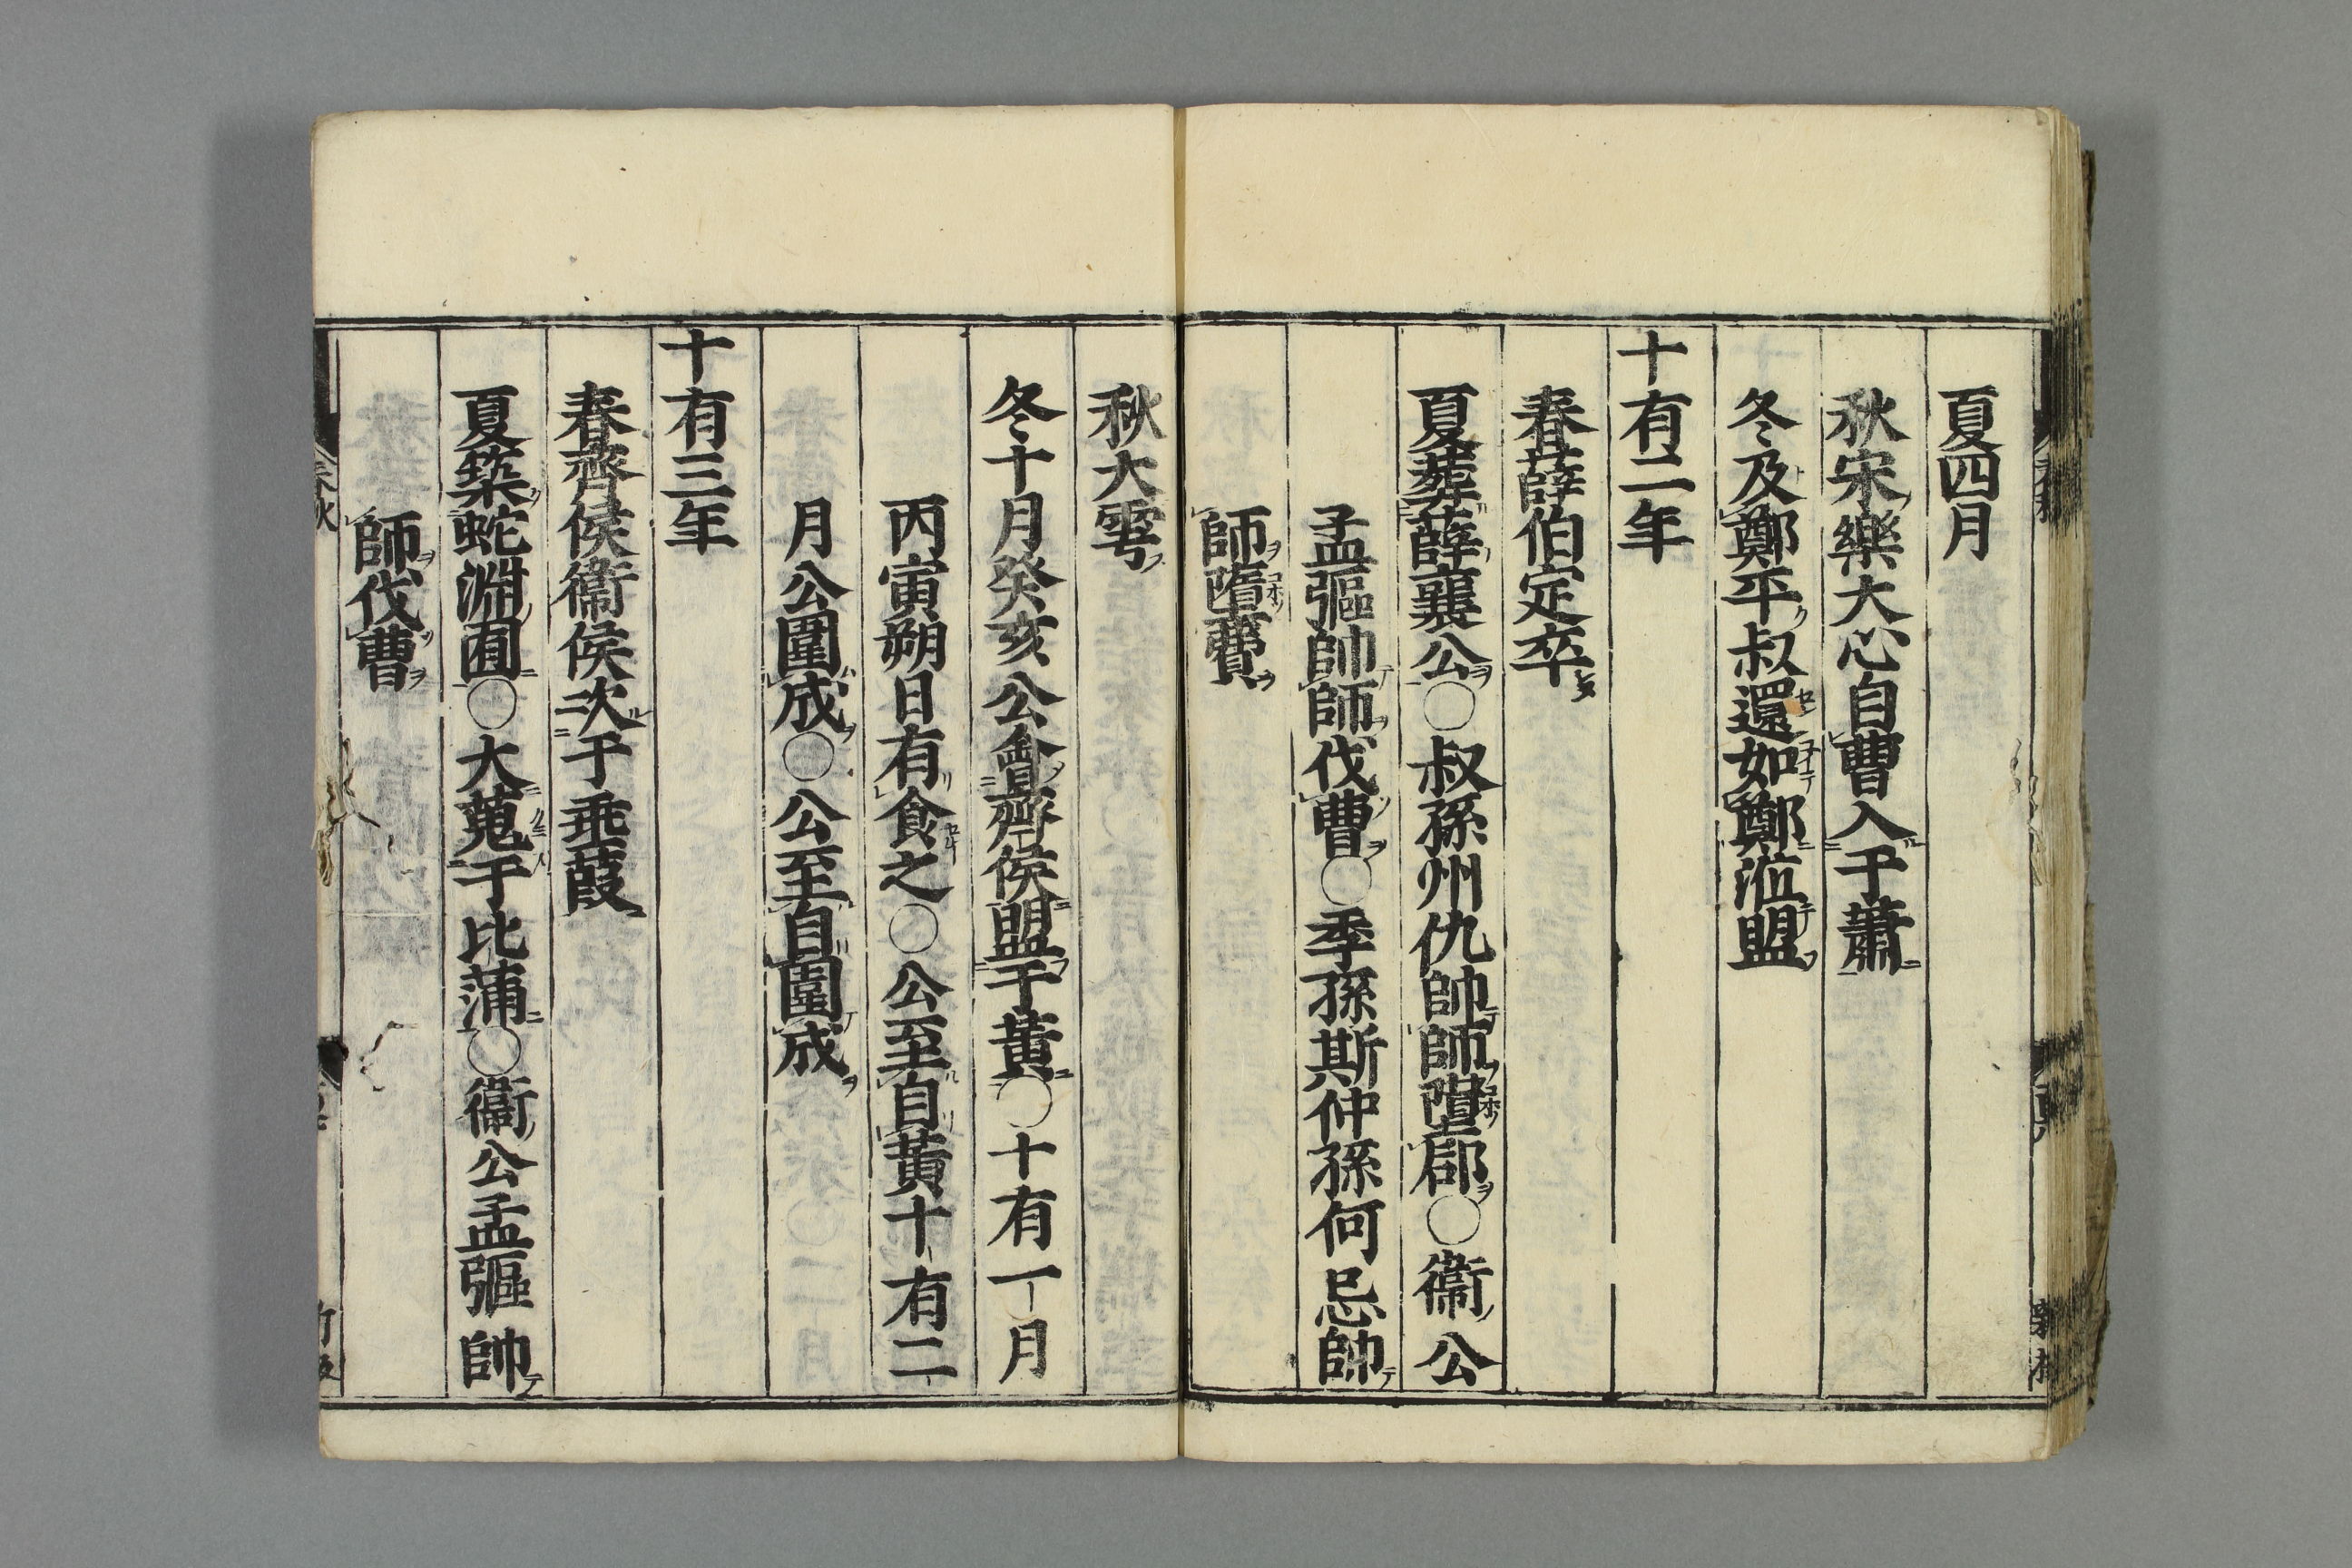 夏四月
秋宋樂大心自曹入于蕭
冬及鄭平叔還如鄭涖盟
十有二年
春薛伯定卒
夏葬薛襄公○叔孫州仇帥師墮郈○衞公
孟彄帥師伐曹○季孫斯仲孫何忌帥
師墮費
秋大雩
冬十月癸亥公會齊侯盟于黃○十有一月
丙寅朔日有食之○公至自黃十有二
月公圍成○公至自圍成
十有三年
春齊侯衞侯次于垂葭
夏築蛇淵囿○大蒐于比蒲○衞公孟彄帥
師伐曹